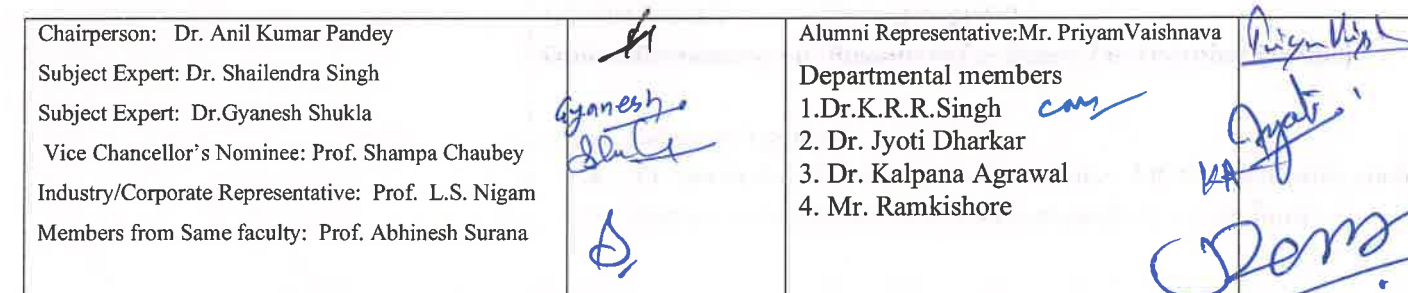 Chairperson: Dr. Anil Kumar Pandey
Subject Expert: Dr. Shailendra Singh
Subject Expert: Dr.Gyanesh Shukla
Gyanesh
Vice Chancellor's Nominee: Prof. Shampa Chaubey
Industry/Corporate Representative: Prof. L.S. Nigam
Members from Same faculty: Prof. Abhinesh Surana
Alumni Representative:Mr. PriyamVaishnava
Departmental members
1.Dr.K.R.R.Singh
2. Dr. Jyoti Dharkar
Jyoti
3. Dr. Kalpana Agrawal
KA
4. Mr. Ramkishore